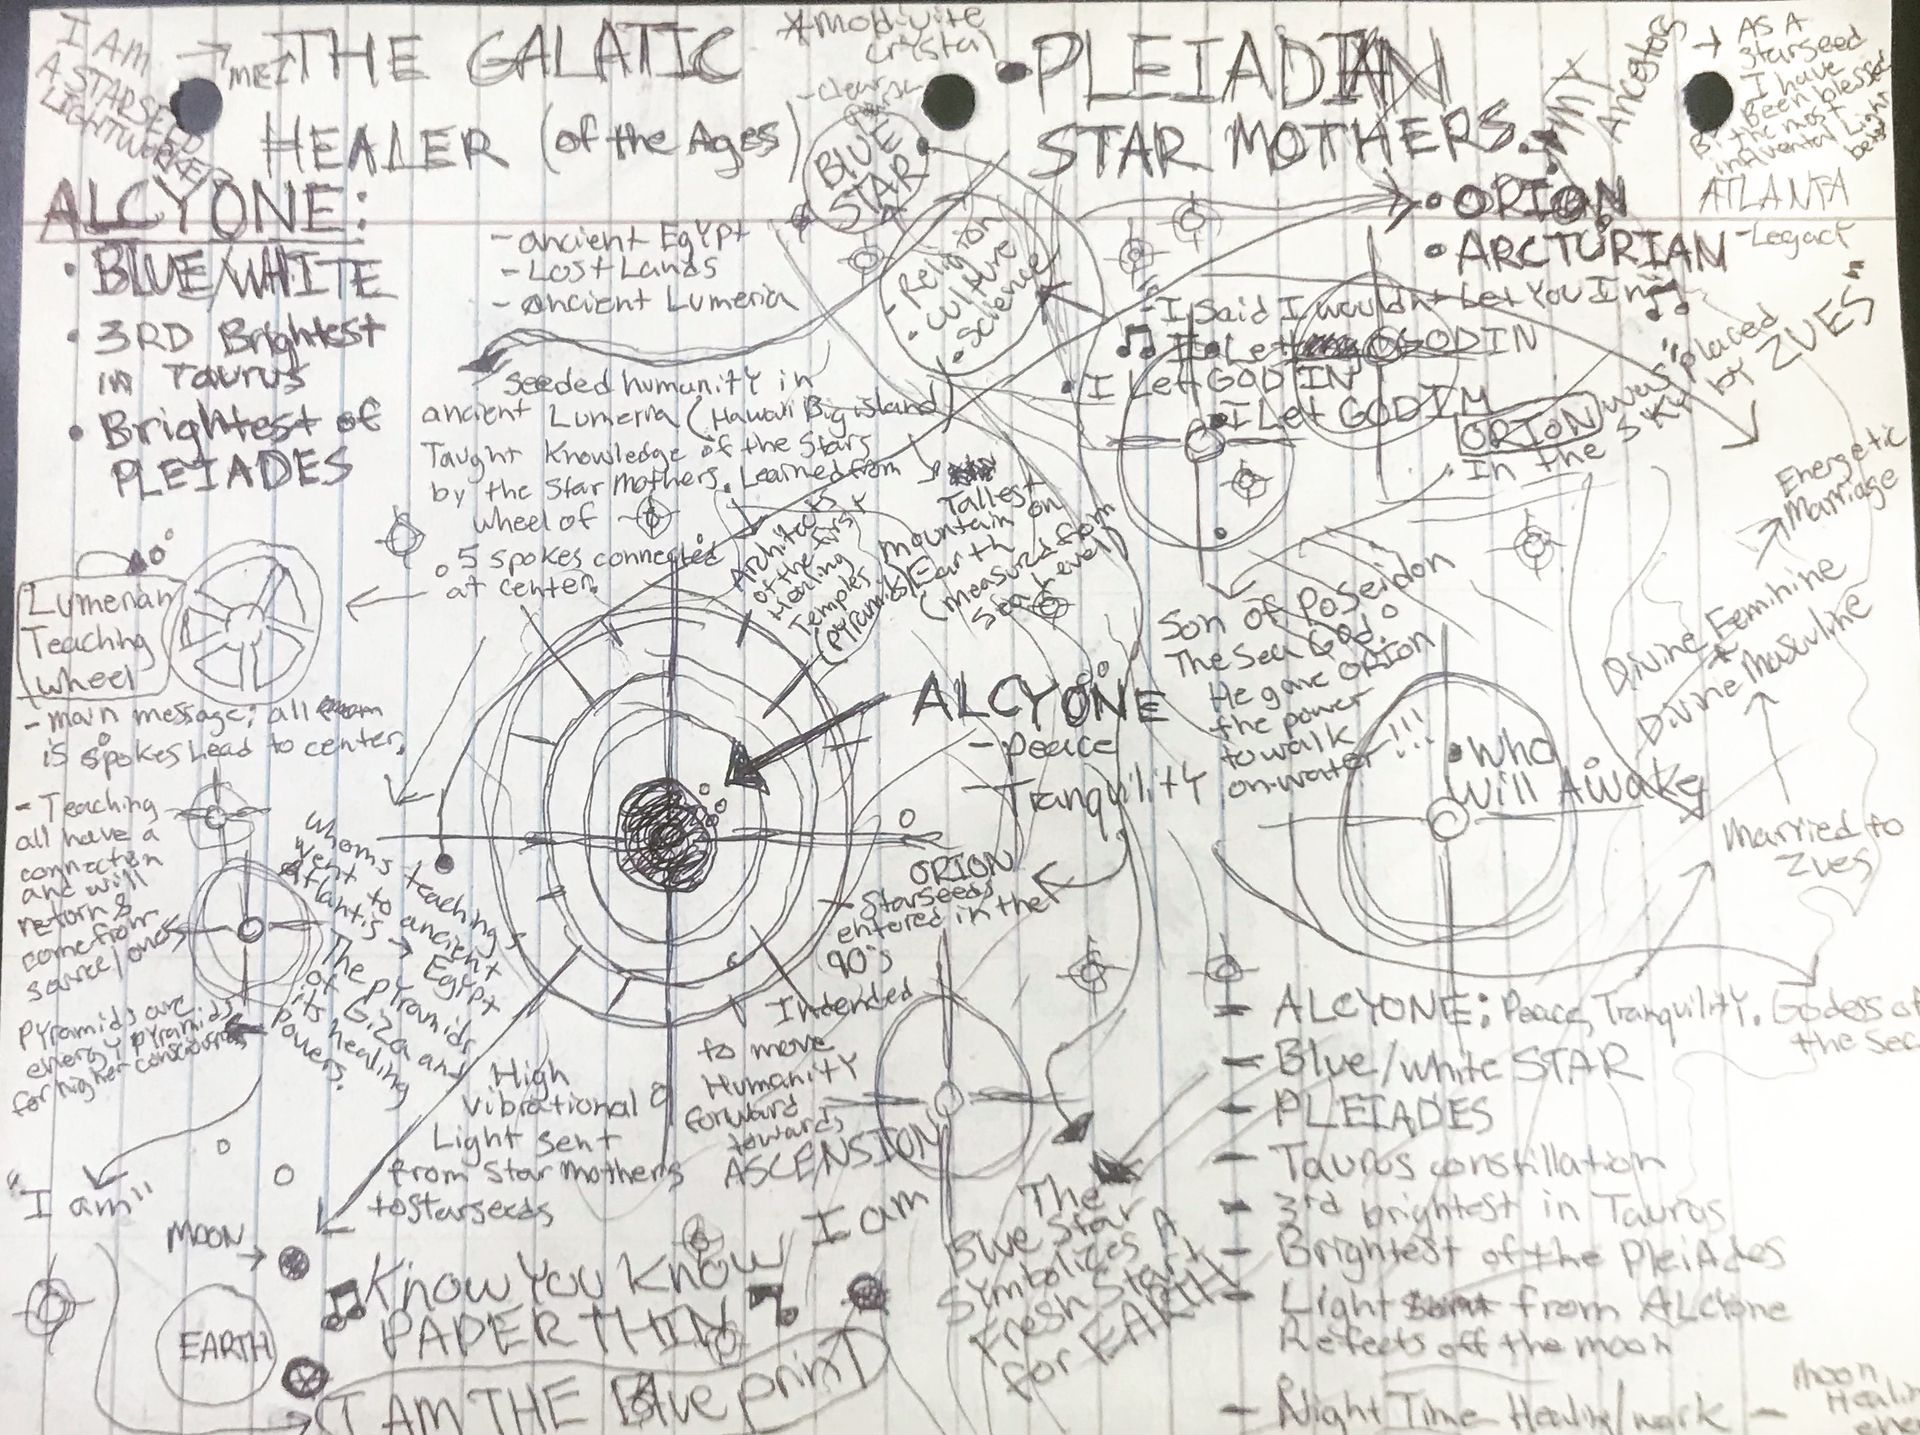 I AM
A STARSEED
LIGHTWORKER
→ ME!
THE GALATIC
HEALER (of the Ages)
crystal
BLUE
STAR
• PLEIADIAN
STAR MOTHERS.
MY
Ancestors
→ AS A
Starseed
I have
Been blessed
By the most
influental Light
beings
ATLANTA
- Legacy
• ORION
• ARCTURIAN
ALCYONE:
• BLUE/WHITE
• 3RD Brightest
in Taurus
• Brightest of
PLEIADES
- ancient Egypt
- Lost Lands
- ancient Lumeria
- Religion
• culture
• science
- I Said I wouldnt Let You In
I Let GODIN
• I Let GOD IN
I Let GODIM
ORION was "placed
In the sky by ZUES"
Seeded humanity in
ancient Lumeria (Hawaii Big island)
Taught Knowledge of the Stars
by the Star Mothers. Learned from
wheel of
5 spokes connected
at center.
Architects
of the first
Healing
Temples
(pyramids)
Tallest
mountain on
Earth
(measured from
sea level)
Lumerian
Teaching
wheel
- main message; all
is spokes Lead to center.
- Teaching
all have a
connection
and will
return &
come from
source/oness
Pyramids are
energy pyramids
for higher consciousness
whoms teachings
went to ancient
atlantis → Egypt
The pyramids
of Giza and
its healing
powers.
ALCYONE
- peace
- Tranquility
Son of Poseidon
The Sea God.
He gave ORION
the power
to walk
on water!!!
Energetic
Marriage
Divine Feminine
+
Divine Masculine
• Who
Will Awake
Married to
Zues
ORION
Starseeds
entered in the
90's
Intended
to move
Humanity
forward
towards
ASCENSION
High
vibrational
Light sent
from Star Mothers
to starseeds
"I am"
MOON →
EARTH
I am
Know You Know
PAPER THIN
I AM THE Blue print
The
Blue Star
Symbolizes A
Fresh Start
for EARTH
- ALCYONE: Peace, Tranquility. Godess of
the Sea
- Blue/white STAR
- PLEIADES
- Taurus constillation
- 3rd brightest in Taurus
- Brightest of the PleiAdes
- Light from ALCyone
Refects off the moon
- Night Time Healin/work -
moon